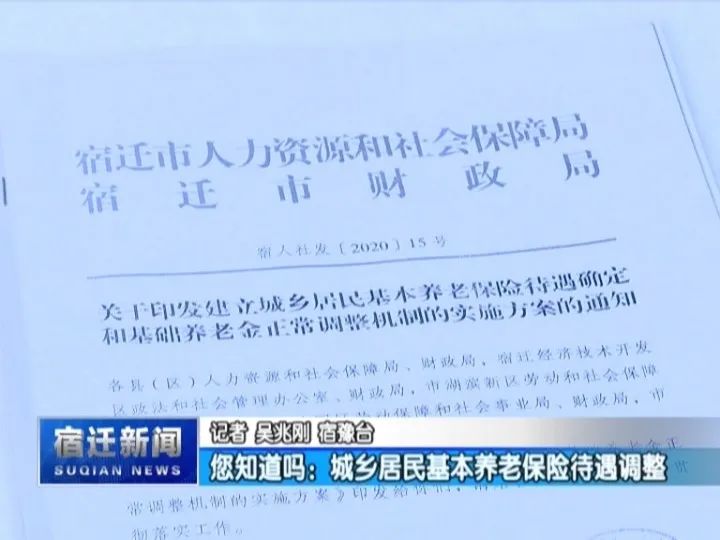 宿迁市人力资源和社会保障局
宿迁市财政局
宿人社发〔2020〕15号
关于印发建立城乡居民基本养老保险待遇确定
和基础养老金正常调整机制的实施方案的通知
各县（区）人力资源和社会保障局、财政局，宿迁经济技术开发
区政法和社会管理办公室、财政局，市湖滨新区劳动和社会保障
劳动保障和社会事业局、财政局，市
老金正
常调整机制的实施方案》印发给你们，请
彻落实工作。
宿迁新闻
SUQIAN NEWS
记者 吴兆刚 宿豫台
您知道吗：城乡居民基本养老保险待遇调整